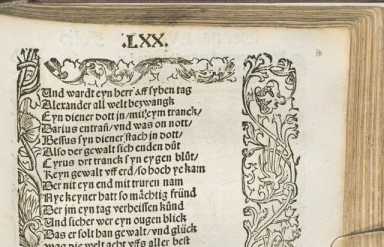 .LXX.
Und wardt eyn herr aff syben tag
Alexander all welt bezwangk
Eyn diener dott in/mit eym tranck/
Darius entran/ vnd was on nott/
Bessus syn diener stach in dott/
Also der gewalt sich enden důt
Cyrus ort tranck syn eygen blůt/
Keyn gewalt vff erd/ so hoch ye kam
Der nit eyn end mit truren nam
Nye keyner hatt so mächtig fründ
Der jm eyn tag verheissen künd
Und sicher wer eyn ougen blick
Das er solt han gewalt/ vnd glück
die welt acht vffs aller best